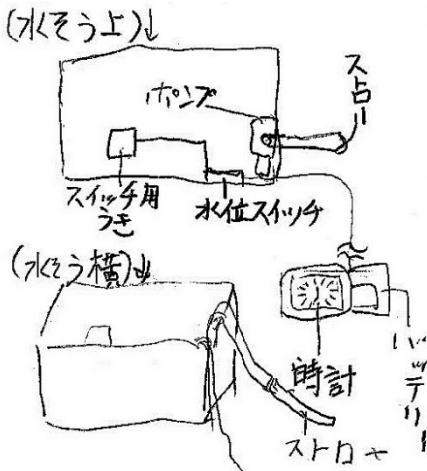 (水そう上)↓
ポンプ
ストロー
スイッチ用
うき
水位スイッチ
(水そう横)↓
時計
バッテリー
ストロー